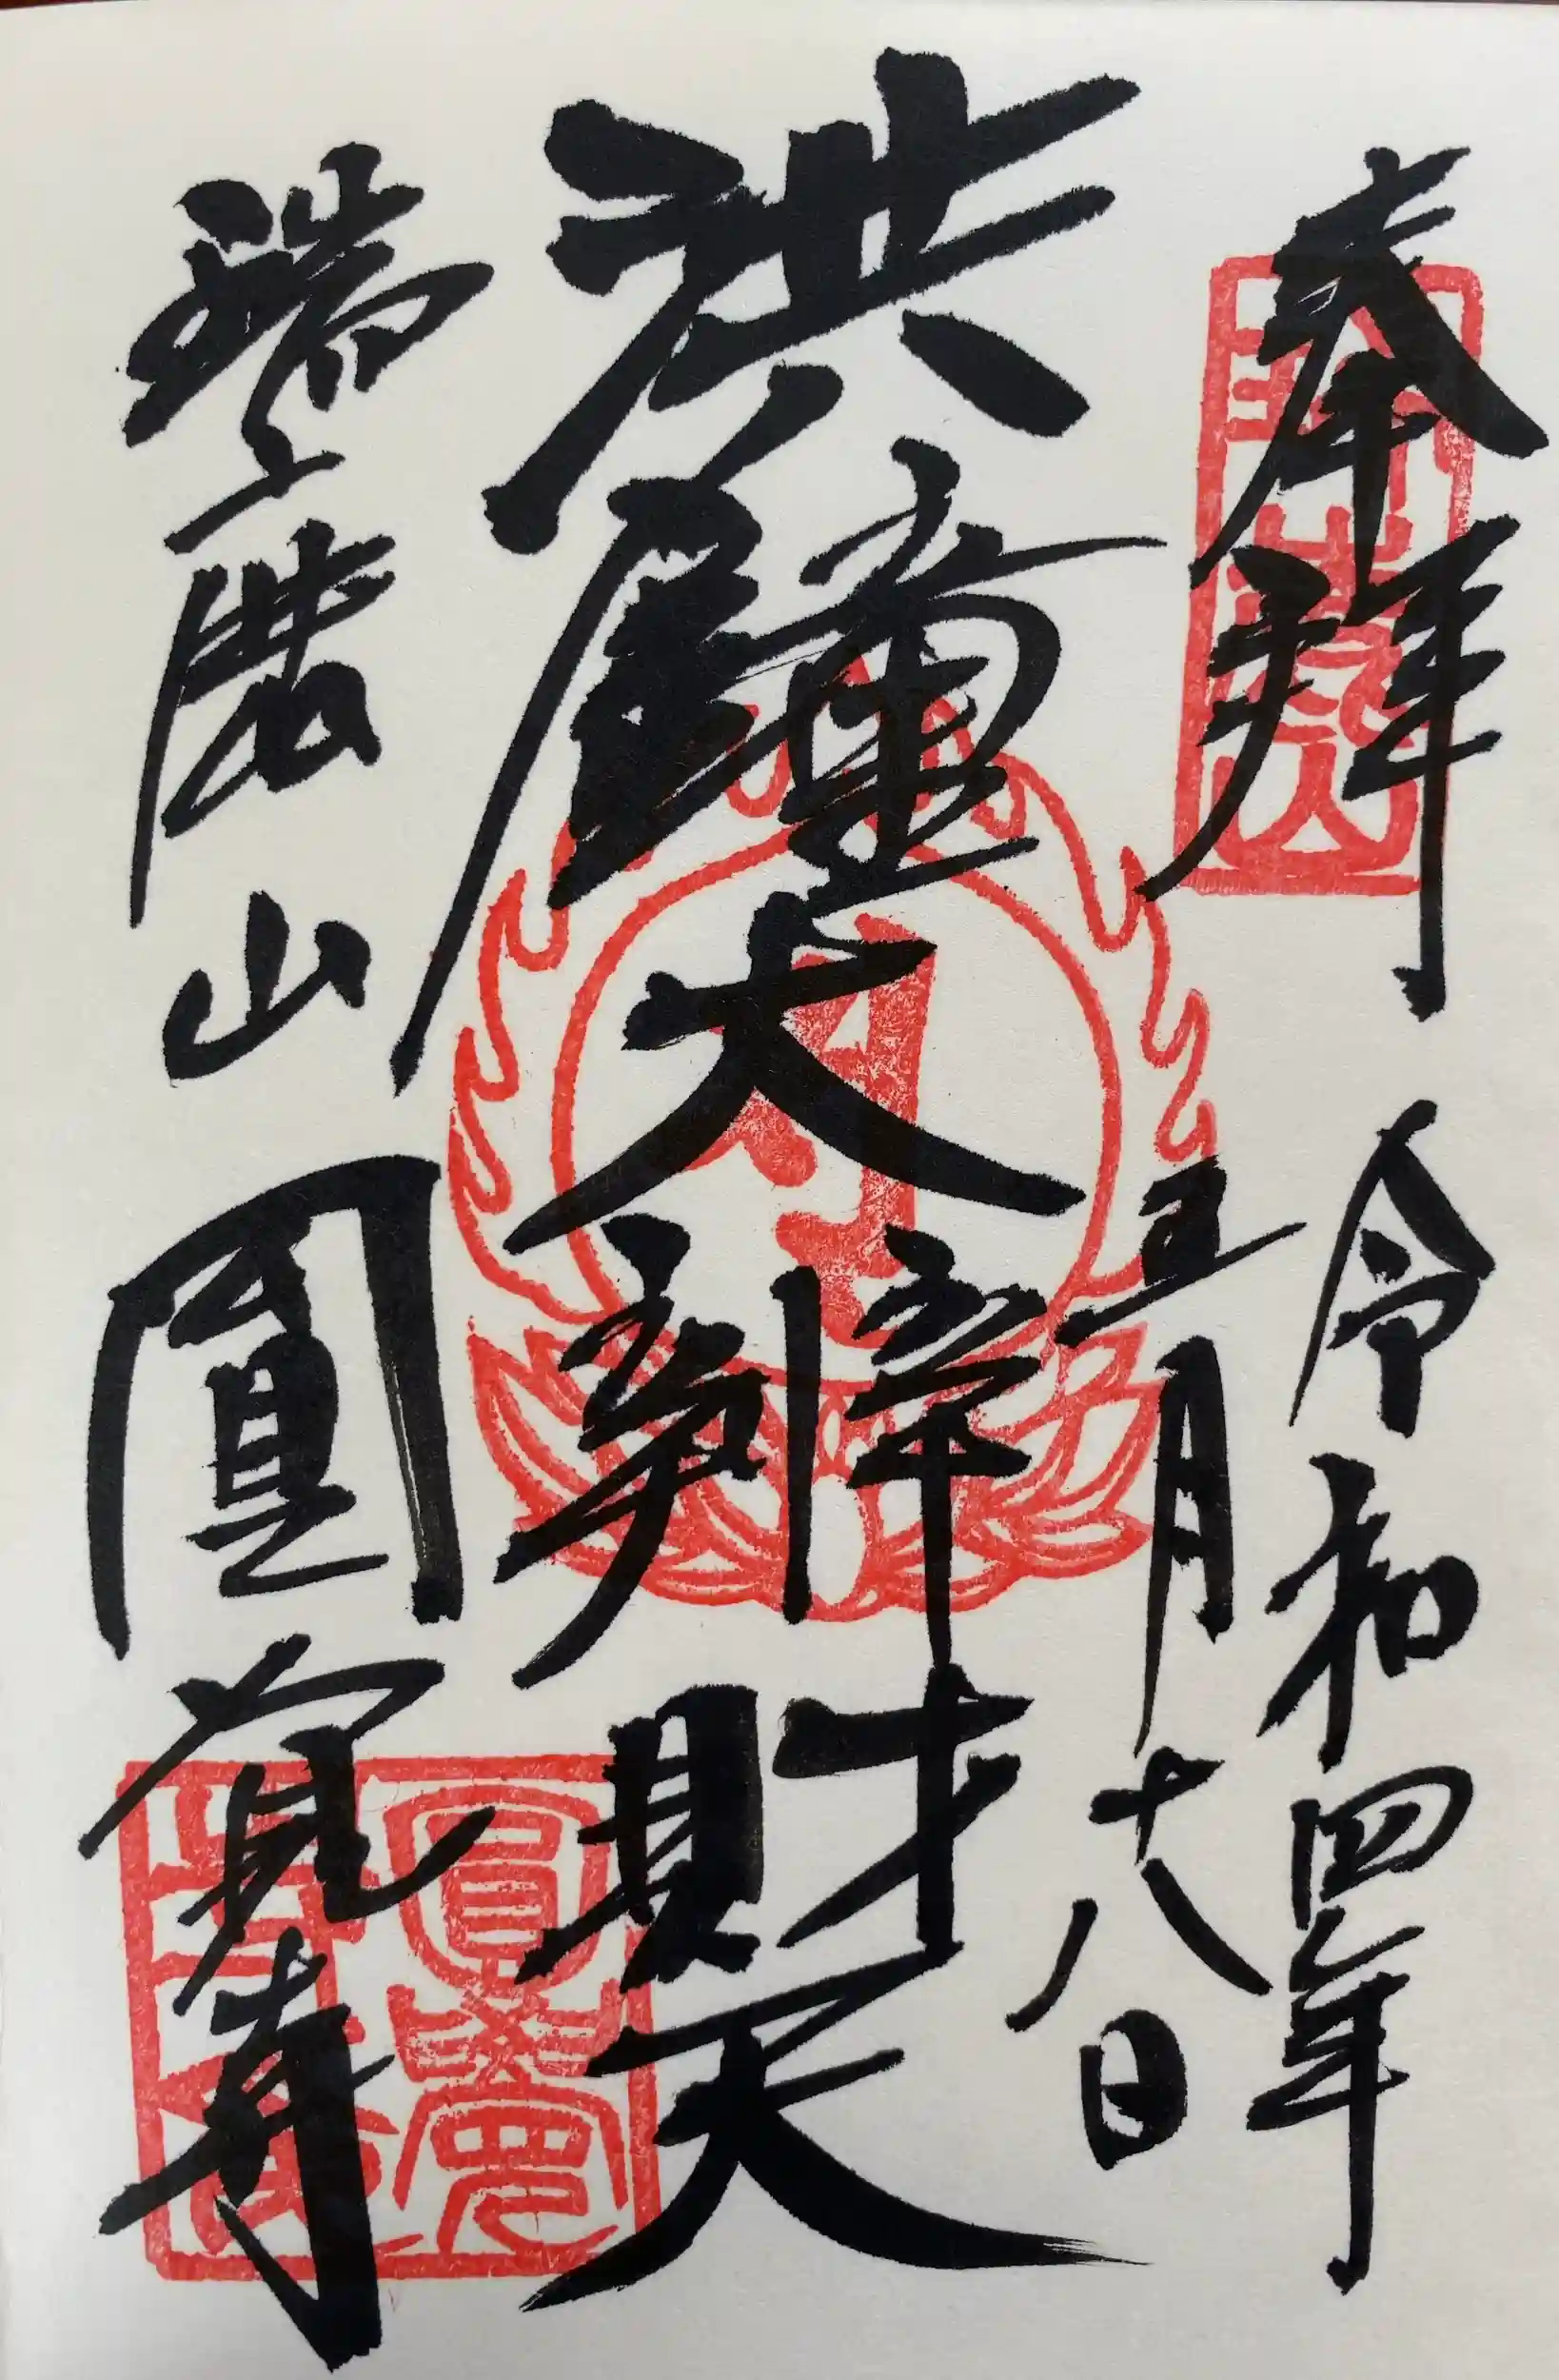 奉拝
令和四年
五月十八日
洪鐘大辨財天
瑞鹿山 圓覚寺